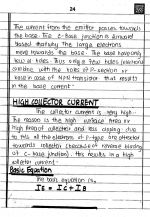 24
The current from the emitter passes towards
the base. The C-base junction is forward
biased thereby the large electrons
move towards the base. The base has only
few a holes. Thus only a few holes electrons
combine with the holes of P-section or
base in case of NPN transistor that results
in the base current
HIGH COLLECTOR CURRENT
The collector current is very high.
The reason is the high surface area or
high area of collector and less doping due
to this all the electrons of n-type are attracted
towards collector (because of reverse biasing
of C-base junction). This results in a high
collector current.
Basic Equation
The basic equation is,
IE = IC + IB